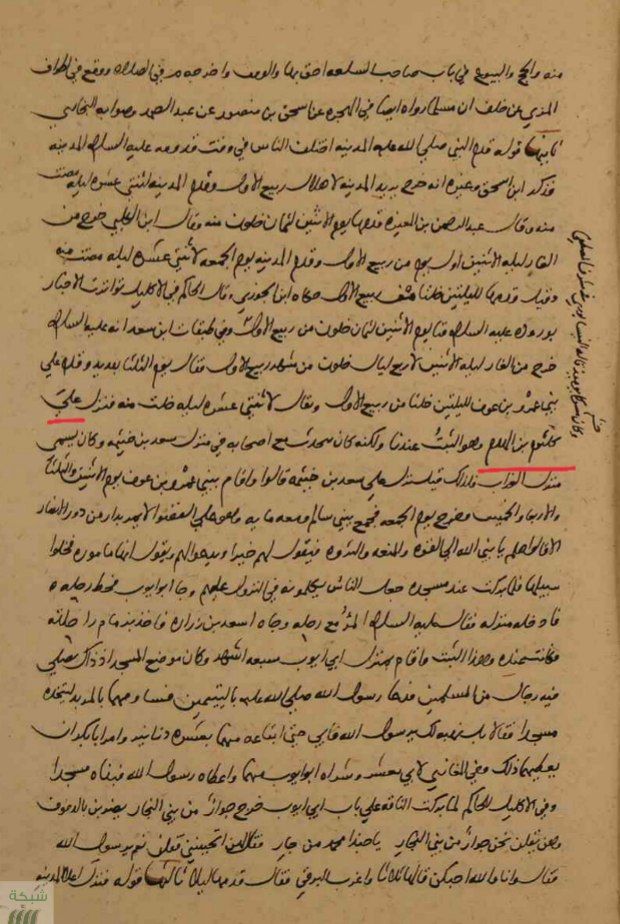 منه والحج والبيوع في باب صاحب السلعه احق بها والوقف واخرجه م في الصلاه ووقع في اطراف
المزي عن خلف ان مسلما رواه ايضا في الهجره عن اسحق بن منصور عن عبد الصمد وصوابه البخاري
ثانيها قوله قدم النبي صلي الله عليه المدينه اختلف الناس في وقت قدومه عليه السلام المدينه
فذكر ابن اسحق وغيره انه خرج يريد المدينه لاهلال ربيع الاول وقدم المدينه لثنتي عشره ليله مضت
منه وقال عبد الرحمن بن المغيره قدمها يوم الاثنين لثمان خلون منه وقال ابن الكلبي خرج من
الغار ليله الاثنين اول يوم من ربيع الاول وقدم المدينه يوم الجمعه لاثنتي عشره ليله مضت منه
وقيل قدمها لليلتين خلتا من ربيع الاول حكاه ابن الجوزي وقال الحاكم في الاكليل تواترت الاخبار
بوروده عليه السلام قبا يوم الاثنين لثمان خلون من ربيع الاول وفي طبقات ابن سعد انه عليه السلام
خرج من الغار ليله الاثنين لاربع ليال خلون من شهر ربيع الاول فقال يوم الثلثا بقديد وقدم علي
بني عمرو بن عوف لليلتين خلتا من ربيع الاول ويقال لاثنتي عشره ليله خلت منه فنزل علي
كلثوم بن الهدم وهو الثبت عندنا ولكنه كان يتحدث مع اصحابه في منزل سعد بن خيثمه وكان يسمي
منزل العزاب فلذلك قيل نزل علي سعد بن خيثمه قالوا واقام ببني عمرو بن عوف يوم الاثنين والثلثا
والاربعا والخميس وخرج يوم الجمعه فجمع ببني سالم ومعه مايه وهو علي القصوا لا يمر بدار من دور الانصار
الا قالوا هلم يا نبي الله الي القوه والمنعه والثروه فيقول لهم خيرا ويدعوا لهم ويقول انها ماموره فخلوا
سبيلها فلما بركت عند مسجده جعل الناس يكلمونه في النزول عليهم وجا ابو ايوب فحط رحله
فادخله منزله فقال عليه السلام المرؤ مع رحله وجاء اسعد بن زراره فاخذ بزمام راحلته
فكانت عنده وهذا الثبت واقام بمنزل ابي ايوب سبعه اشهر وكان موضع المسجد اذ ذاك يصلي
فيه رجال من المسلمين فدعا رسول الله صلي الله عليه باليتيمين فساومهما بالمربد ليتخذه
مسجدا فقالا بل نهبه لك يرسول الله فابي حتي ابتاعه منهما بعشره دنانير وامر ابا بكر ان
يعطيهما ذلك وفي المغازي لابي معشر وشراه ابو ايوب منهما واعطاه رسول الله فبناه مسجدا
وفي الاكليل للحاكم لما بركت الناقه علي باب ابي ايوب خرج جوار من بني النجار يضربن بالدفوف
وهن يقلن نحن جوار من بني النجار يا حبذا محمد من جار فقال لهن اتحببنني قلن نعم يرسول الله
فقال وانا والله احبكن قالها ثلاثا واغرب البرقي فقال قدمها ليلا ثالثها قوله فنزل اعلا المدينه
شبكة